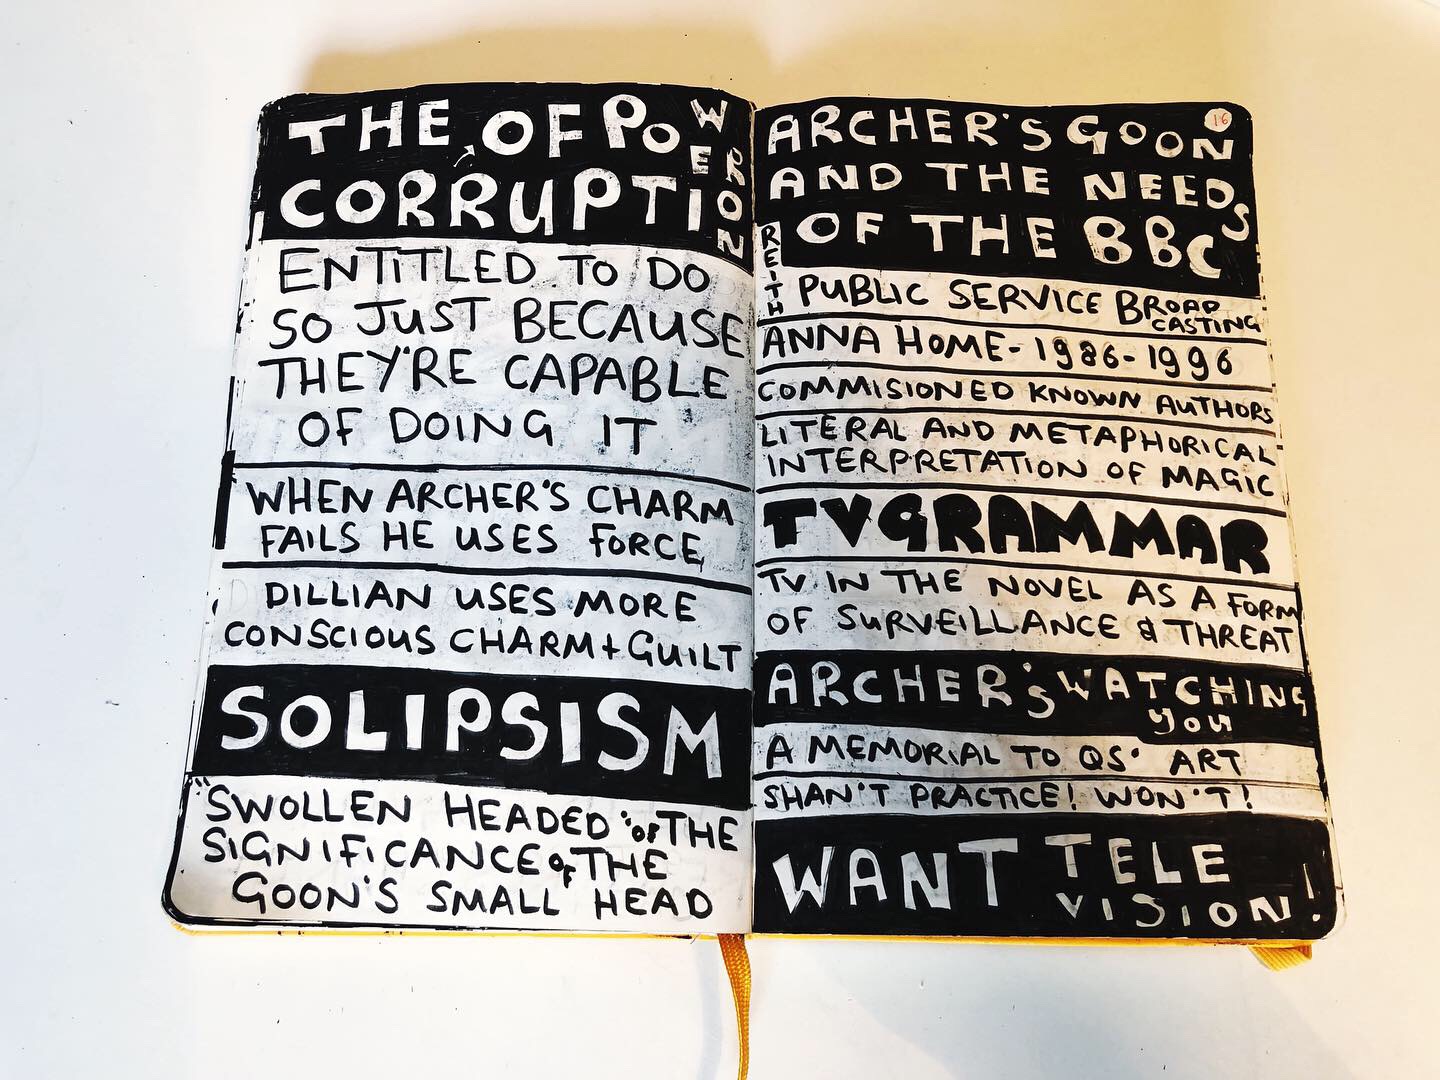 THE OF POWER ON
CORRUPTION
ENTITLED TO DO
SO JUST BECAUSE
THEY'RE CAPABLE
OF DOING IT
WHEN ARCHER'S CHARM
FAILS HE USES FORCE,
DILLIAN USES MORE
CONSCIOUS CHARM + GUILT
SOLIPSISM
"SWOLLEN HEADED" OF THE
SIGNIFICANCE OF THE
GOON'S SMALL HEAD
16
ARCHER'S GOON
AND THE NEEDS
OF THE BBC
REITH PUBLIC SERVICE BROADCASTING
ANNA HOME - 1986-1996
COMMISIONED KNOWN AUTHORS
LITERAL AND METAPHORICAL
INTERPRETATION OF MAGIC
TV GRAMMAR
TV IN THE NOVEL AS A FORM
OF SURVEILLANCE & THREAT
ARCHER'S WATCHING
YOU
A MEMORIAL TO QS' ART
SHAN'T PRACTICE! WON'T!
WANT TELE
VISION!